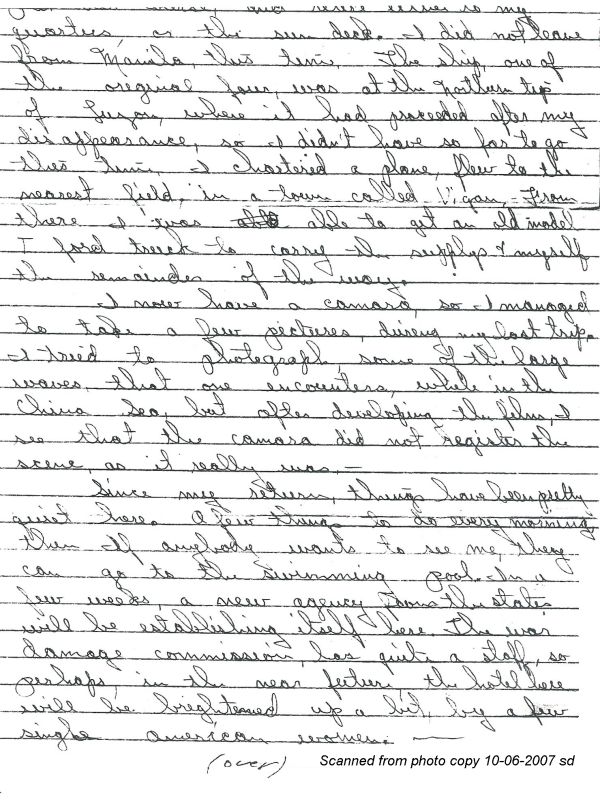 quarters, or the sun deck. I did not leave
from Manila, this time. The ship, one of
the original four, was at the northern tip
of Luzon, where it had proceeded after my
disappearance, so I didn't have so far to go
this time. I chartered a plane, flew to the
nearest field, in a town called Vigan, From
there I was able to get an old model
T ford truck to carry the supplys & myself
the remainder of the way.
I now have a camara, so I managed
to take a few pectures, during my last trip.
I tried to photograph some of the large
waves, that one encounters, while in the
China Sea, but after developing the film, I
see that the camara did not register the
scene, as it really was, —
Since my return, things have been pretty
quiet here. A few things to do every morning,
then if anybody wants to see me, they
can go to the swimming pool. In a
few weeks, a new agency from the states
will be establishing itself here. The war
damage commission, has quite a staff, so
perhaps, in the near future, the hotel here
will be brightened up a bit, by a few
single american women. —
(over)
Scanned from photo copy 10-06-2007 sd